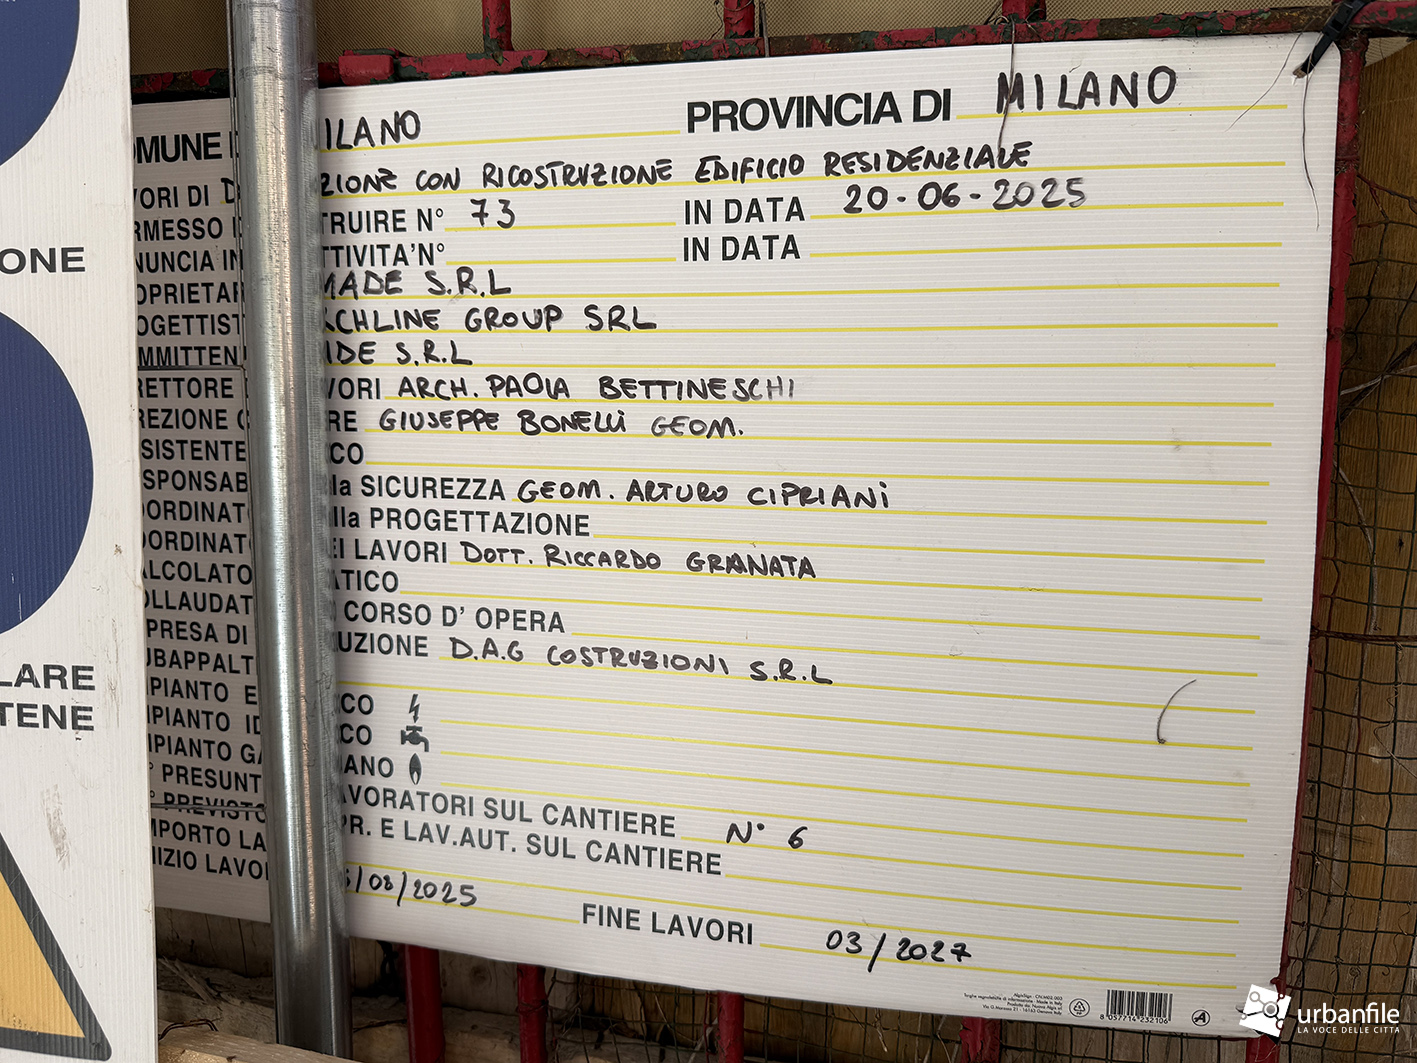 OMUNE D ILANO PROVINCIA DI MILANO
VORI DI D ZIONE CON RICOSTRUZIONE EDIFICIO RESIDENZIALE
RMESSO TRUIRE N° 73 IN DATA 20-06-2025
NUNCIA IN TTIVITA'N° IN DATA
OPRIETAR MADE S.R.L
OGETTIST CHLINE GROUP SRL
MMITTEN DE S.R.L
RETTORE VORI ARCH. PAOLA BETTINESCHI
REZIONE C RE GIUSEPPE BONELLI GEOM.
SISTENTE CO
SPONSAB la SICUREZZA GEOM. ARTURO CIPRIANI
OORDINAT lla PROGETTAZIONE
OORDINAT EI LAVORI DOTT. RICCARDO GRANATA
ALCOLATO ATICO
OLLAUDAT CORSO D' OPERA
PRESA DI UZIONE D.A.G COSTRUZIONI S.R.L
UBAPPALT
PIANTO E CO
IPIANTO ID CO
IPIANTO GA ANO
° PRESUNT AVORATORI SUL CANTIERE N° 6
° PREVISTO PR. E LAV.AUT. SUL CANTIERE
MPORTO LA
NIZIO LAVO /08/2025 FINE LAVORI 03/2027
ONE
LARE
TENE
8 057714 232106
urbanfile
LA VOCE DELLE CITTÀ